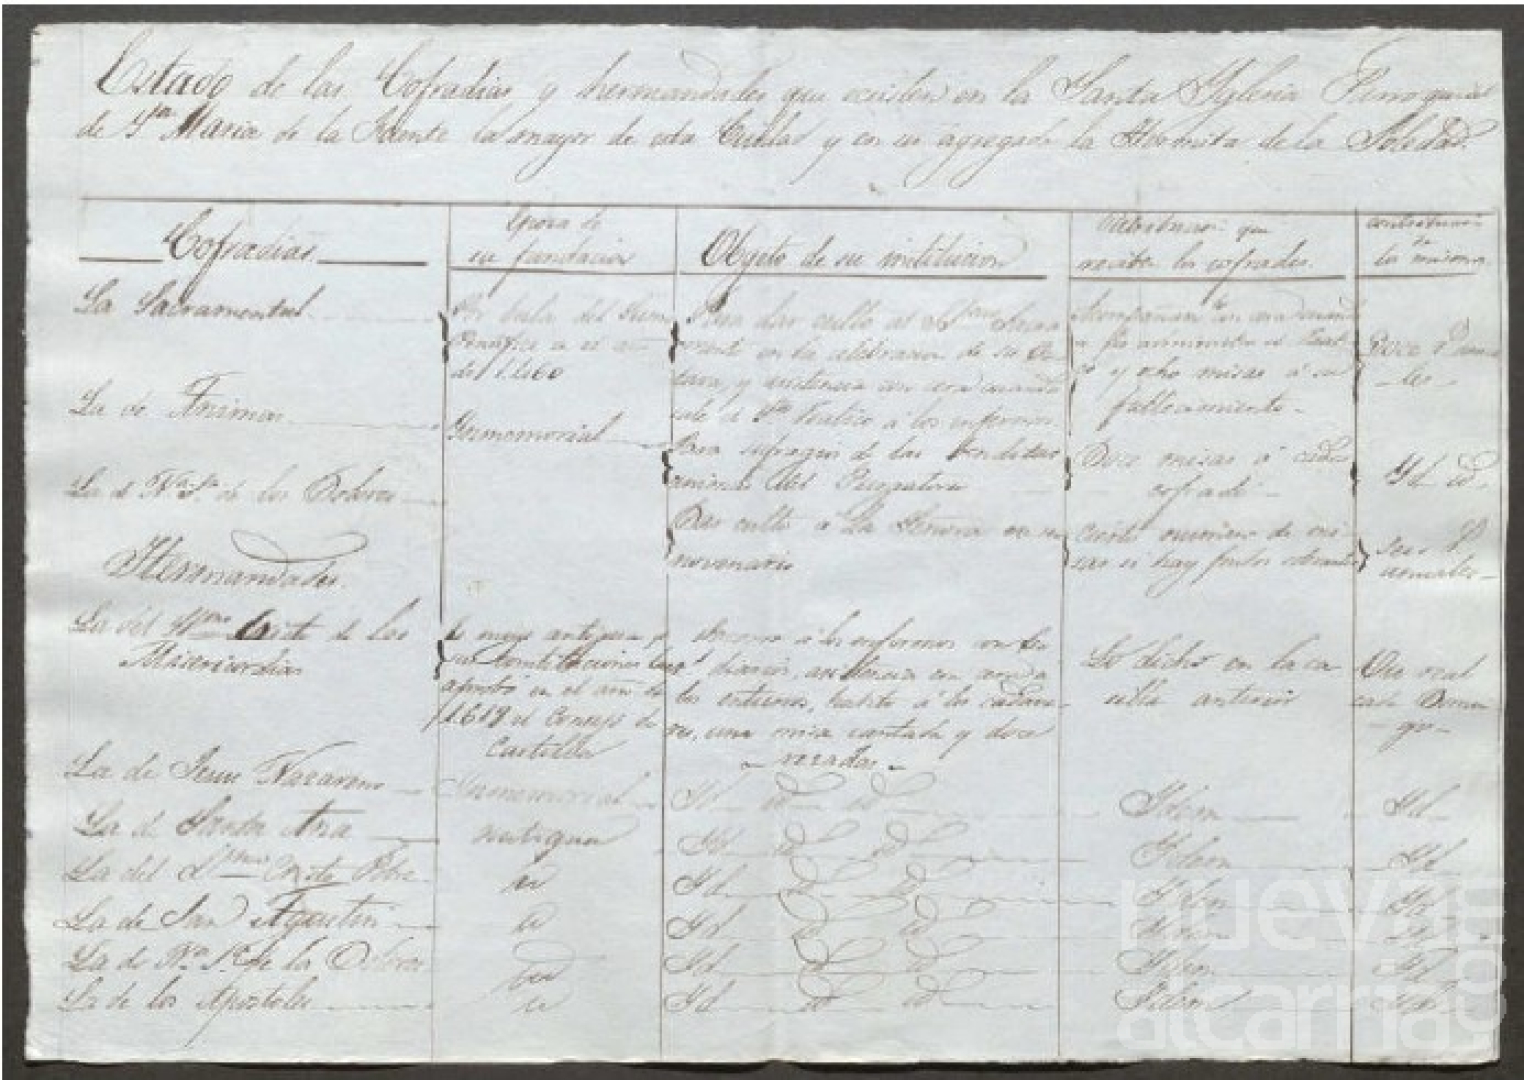 Estado de las Cofradias y hermandades que existen en la Santa Yglesia Parroquial
de Sta Maria de la Fuente la mayor de esta Ciudad y en su agregada la Hermita de la Soledad.
Cofradias.
Epoca de
su fundacion
Objeto de su institucion
que
reciben los cofrades.
contribucion
de
los mismos.
La Sacramental
Por bula del Sumo
Pontifice en el año
de 1.460
Para dar culto al Smo Sacra
mento en la celebracion de su Oc
tava, y asistencia con cera cuando
sale el Sto Viatico á los enfermos.
Acompañan con cera cuando
se les administra el Viati
co y ocho misas á su
fallecimiento.
Doce
les.
La de Animas
Ynmemorial
Para sufragio de las benditas
animas del Purgatorio
Doce misas á cada
cofrade
Yd id.
La de Na Sa de los Dolores
Dar culto á La Señora en su
novenario
Cierto numero de mi
sas si hay fondos
Seis
anuales
Hermandades.
La del Smo Cristo de las
Misericordias
Es muy antigua y
sus constituciones las
aprobó en el año de
1.619 el Consejo de
Castilla
Socorro á los enfermos con
rs diarios, asistencia con cera á
los entierros, habito á los cadave
res, una misa cantada y doce
rezadas.
Lo dicho en la ca
silla anterior
Un real
cada Domin
go
La de Jesus Nazareno
Ynmemorial
Yd id id
Ydem
Yd
La de Santa Ana
antigua
Yd id id
Ydem
Yd
La del Smo Cristo
id
Yd id id
Ydem
Yd
La de San Agustin
id
Yd id id
Ydem
Yd
La de Na Sa de la
id
Yd id id
Ydem
Yd
La de los Apostoles
id
Yd id id
Ydem
Yd
nueva
alcarria